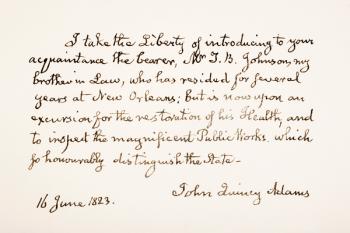 I take the Liberty of introducing to your
acquaintance the bearer, Mr T. B. Johnson, my
brother in Law, who has resided for several
years at New Orleans; but is now upon an
excursion for the restoration of his Health, and
to inspect the magnificent Public Works, which
so honourably distinguish the State—
16 June 1823. John Quincy Adams